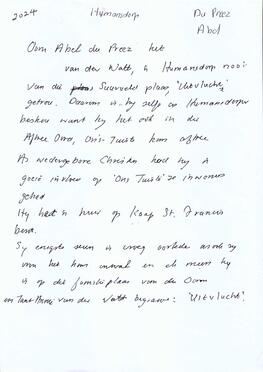 2024 Humansdorp Du Preez
Abel
Oom Abel du Preez het
van der Watt, 'n Humansdorp nooi
van die Suurveld plaas, 'Uitvlucht',
getrou. Daarom is hy self as Humansdorper
beskou want hy het ook in die
Aftree Oord, Ons Tuiste kom aftree
As wedergebore Christen het hy 'n
groei invloed op 'Ons Tuiste' se inwoners
gehad
Hy het 'n huis op Kaap St. Francis
besit.
Sy enigste seun is vroeg oorlede
van het kom en
is op die familieplaas van die Oom
en Tant van der Watt begrawe: 'Uitvlucht'.